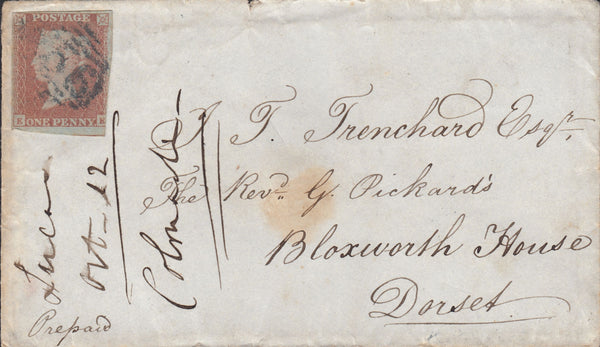 POSTAGE
ONE PENNY
E E
J. T. Trenchard Esqr.
The Revd. G. Pickard's
Bloxworth House
Dorset.
Prepaid
Oct 12